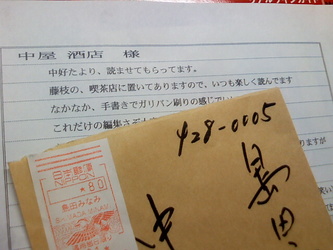 中屋 酒店 様
中好たより、読ませてもらってます。
藤枝の、喫茶店に置いてありますので、いつも楽しく読んでます
なかなか、手書きでガリバン刷りの感じでい
これだけの編集さぞ
428-0005
島田
日本郵便
80
島田みなみ